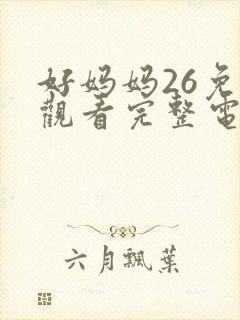 好妈妈26免
觀看完整電
六月飄葉